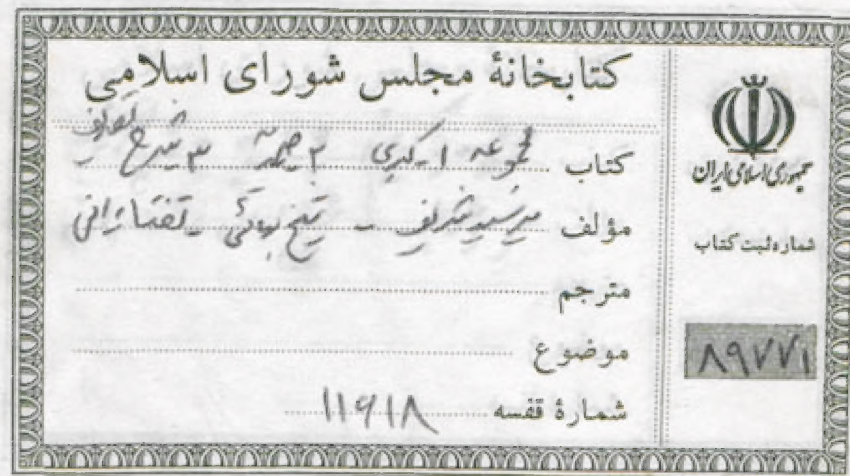 کتابخانهٔ مجلس شورای اسلامی
کتاب مجموعه ۱ـ کبری ۲ـ صمدیّه ۳ـ شرح تصریف
مؤلف میرسید شریف ـ شیخ بهائی ـ تفتازانی
مترجم
موضوع
شمارهٔ قفسه ۱۱۶۱۸
جمهوری اسلامی ایران
شماره ثبت کتاب
۸۹۷۷۱